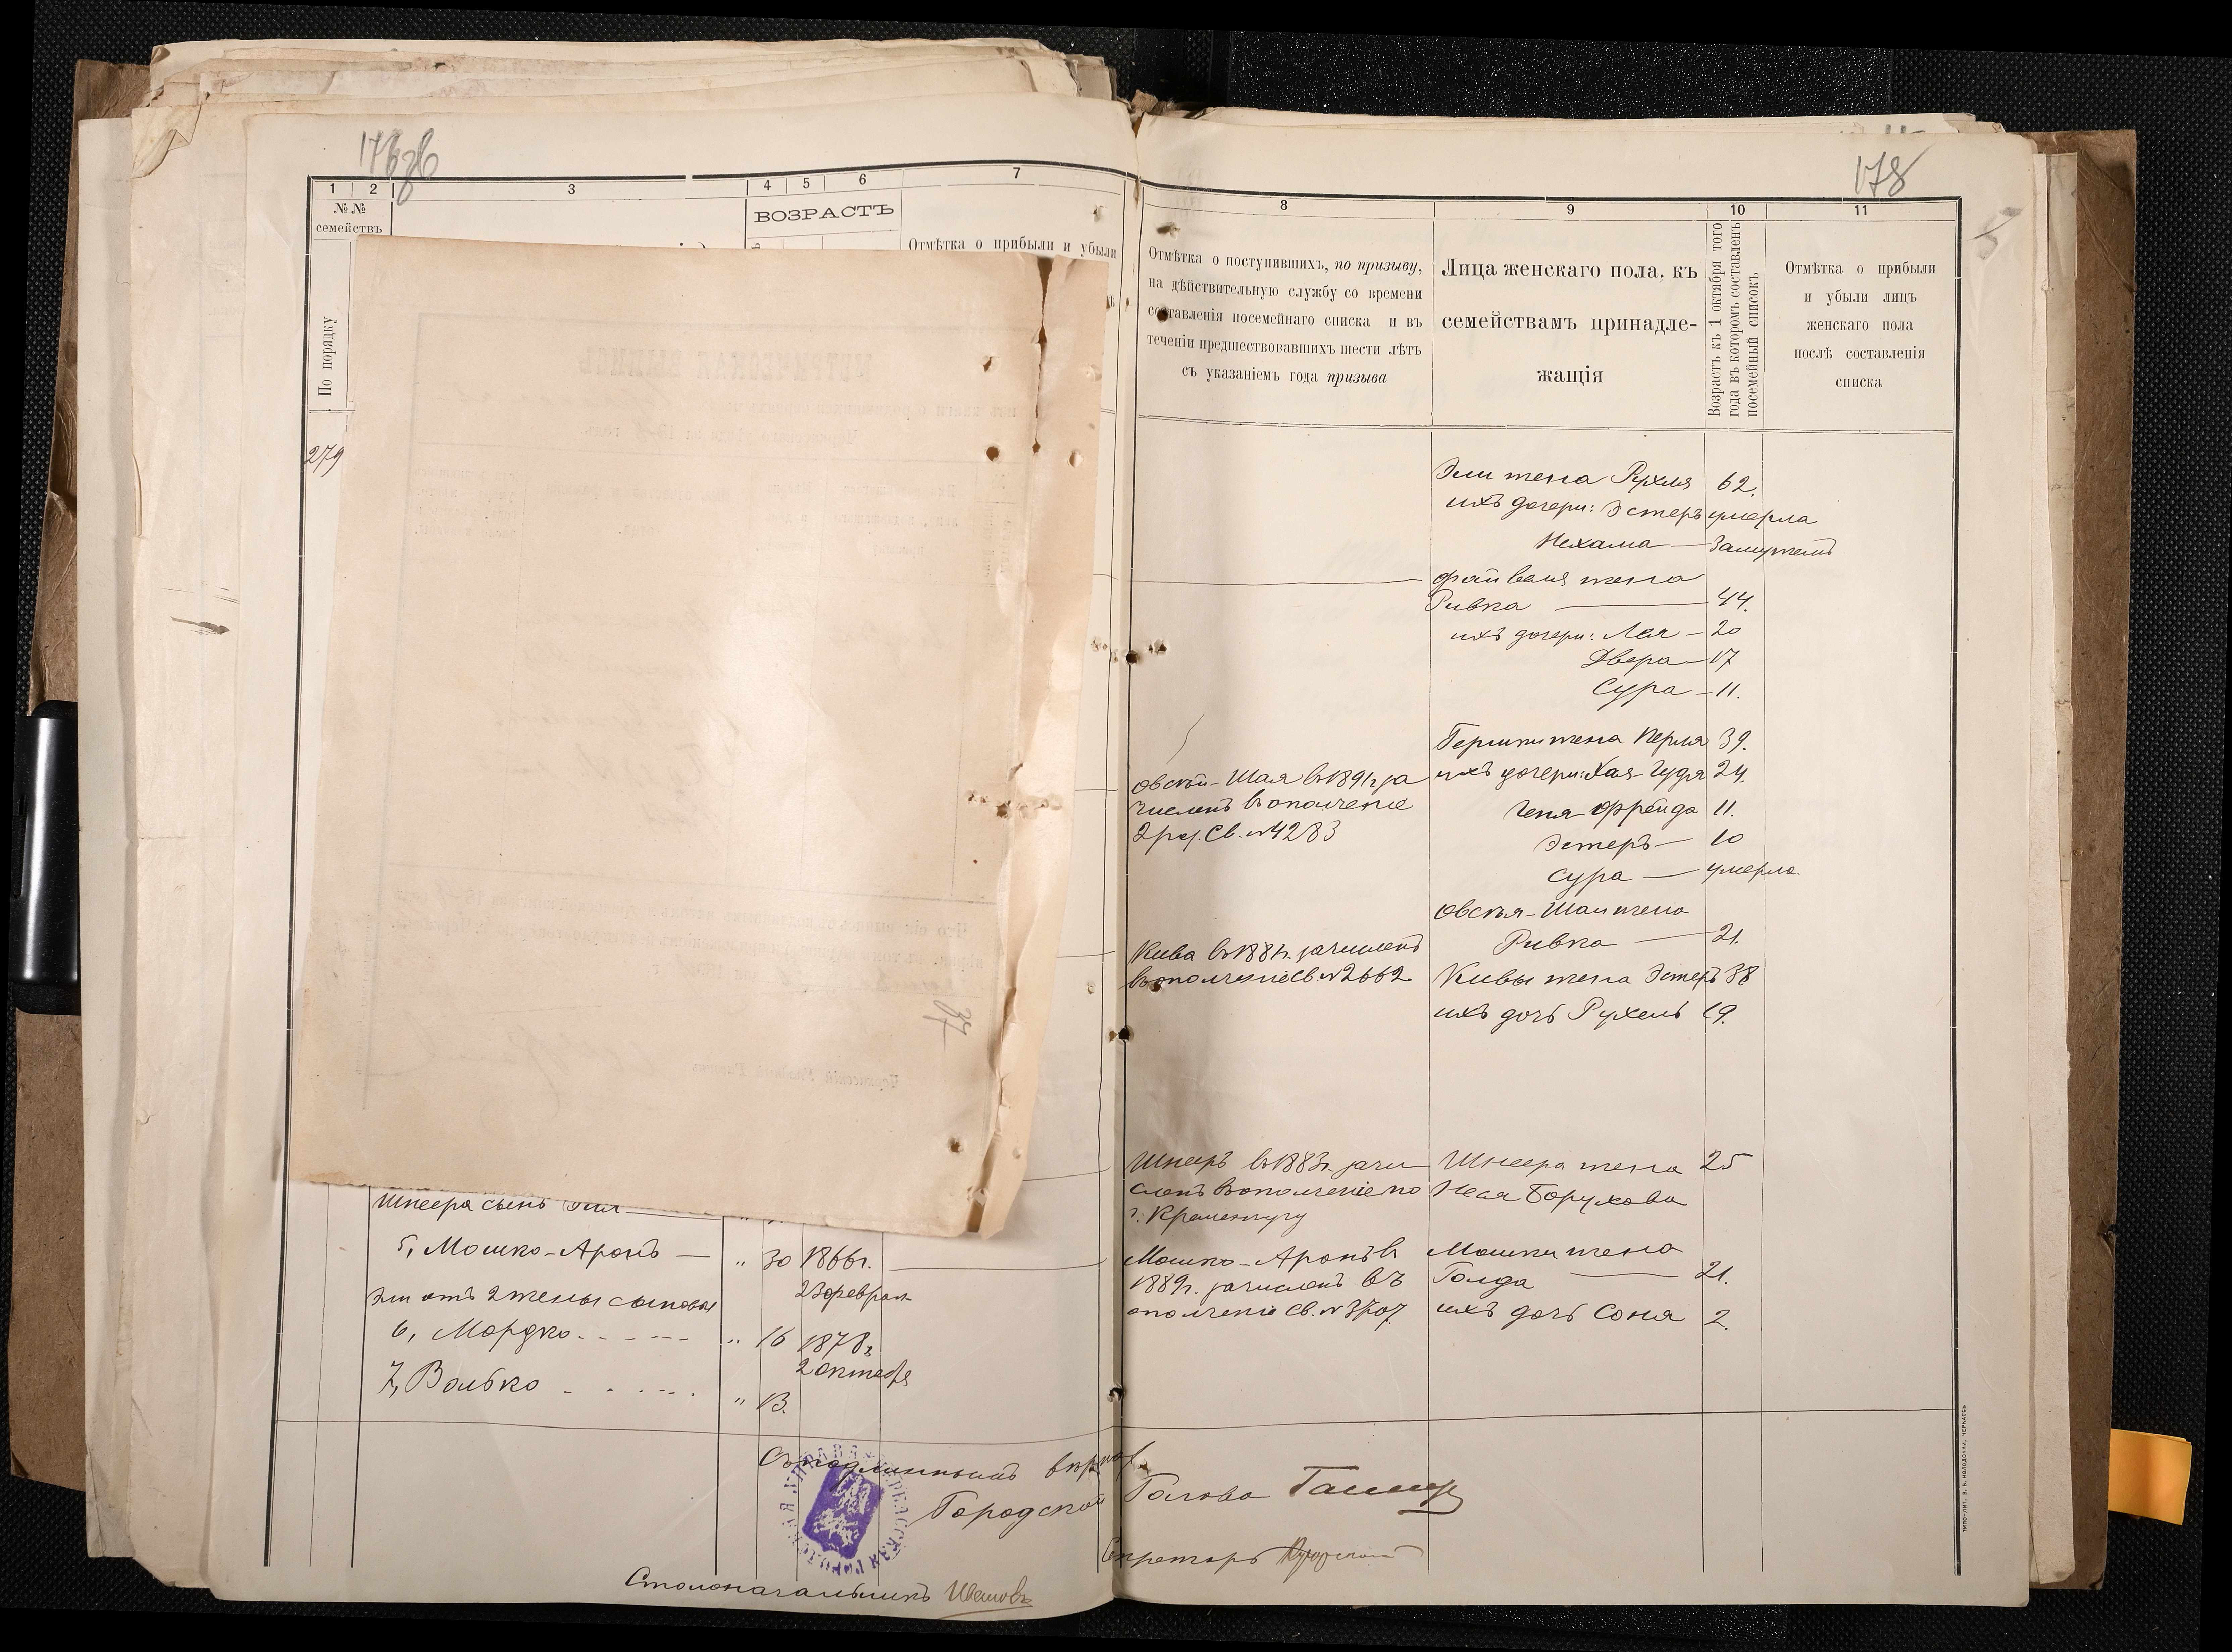 178
1 2 3 4 5 6 7
№ №
семействъ
ВОЗРАСТЪ
Отмѣтка о прибыли и убыли
По порядку
279
Шнеера сынъ Эли
5, Мошко-Аронъ — " 30 1866г.
23 февраля
Эли отъ 2 жены сыновья
6, Мордко - - - - - " 16 1878г
2 Октября
7, Волько - . . - - . " 13.
Съ подлиннымъ вѣрно:
Городской Голова
Секретарь
Столоначальникъ Ивановъ
ЧЕРКАССКАЯ ГОРОДСКАЯ УПРАВА
8 9 10 11
Отмѣтка о поступившихъ, по призыву,
на дѣйствительную службу со времени
составленія посемейнаго списка и въ
теченіи предшествовавшихъ шести лѣтъ
съ указаніемъ года призыва
Лица женскаго пола, къ
семействамъ принадле-
жащія
Возрастъ къ 1 октября того
года въ которомъ составленъ
посемейный списокъ
Отмѣтка о прибыли
и убыли лицъ
женскаго пола
послѣ составленія
списка
Эли жена Рухля 62.
ихъ дочери: Эстеръ умерла
Нехама — Замужемъ
Файвеля жена
Ривка — 44.
ихъ дочери: Лея — 20
Двера — 17
Сура — 11.
Гершки жена Перля 39.
ихъ дочери: Хая-Гудя 24.
Геня Фрейда 11.
Эстеръ — 10
Сура — умерла.
Овсѣй-Шая въ 1891г за
численъ въ ополченіе
2 раз. Св. № 4283
Овсѣя-Шаи жена
Ривка — 21.
Кива въ 1881г. зачисленъ
въ ополченіе Св. № 2662
Кивы жена Эстеръ 38
ихъ дочь Рухель 19.
Шнееръ въ 1883г. зачи
сленъ въ ополченіе по
г. Кременчугу
Шнеера жена 25
Неся Борухова
Мошко-Аронъ въ
1889г. зачисленъ въ
ополченіе Св. № 3707.
Мошки жена
Голда — 21.
ихъ дочь Соня 2.